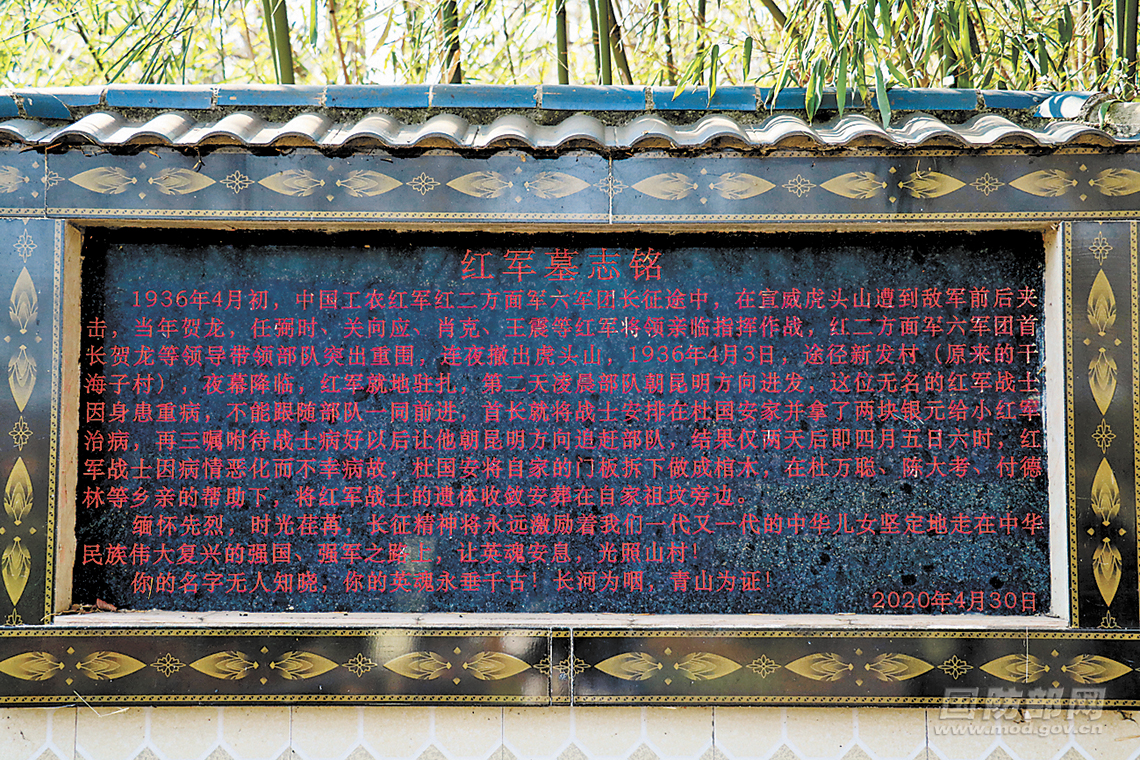 红军墓志铭
1936年4月初，中国工农红军红二方面军六军团长征途中，在宣威虎头山遭到敌军前后夹
击，当年贺龙，任弼时、关向应、肖克、王震等红军将领亲临指挥作战，红二方面军六军团首
长贺龙等领导带领部队突出重围，连夜撤出虎头山，1936年4月3日，途径新发村（原来的干
海子村），夜幕降临，红军就地驻扎，第二天凌晨部队朝昆明方向进发，这位无名的红军战士
因身患重病，不能跟随部队一同前进，首长就将战士安排在杜国安家并拿了两块银元给小红军
治病，再三嘱咐待战士病好以后让他朝昆明方向追赶部队，结果仅两天后即四月五日六时，红
军战士因病情恶化而不幸病故，杜国安将自家的门板拆下做成棺木，在杜万聪、陈大考、付德
林等乡亲的帮助下，将红军战士的遗体收敛安葬在自家祖坟旁边。
缅怀先烈，时光荏苒，长征精神将永远激励着我们一代又一代的中华儿女坚定地走在中华
民族伟大复兴的强国、强军之路上，让英魂安息，光照山村！
你的名字无人知晓，你的英魂永垂千古！长河为咽，青山为证！
2020年4月30日
国防部网
www.mod.gov.cn